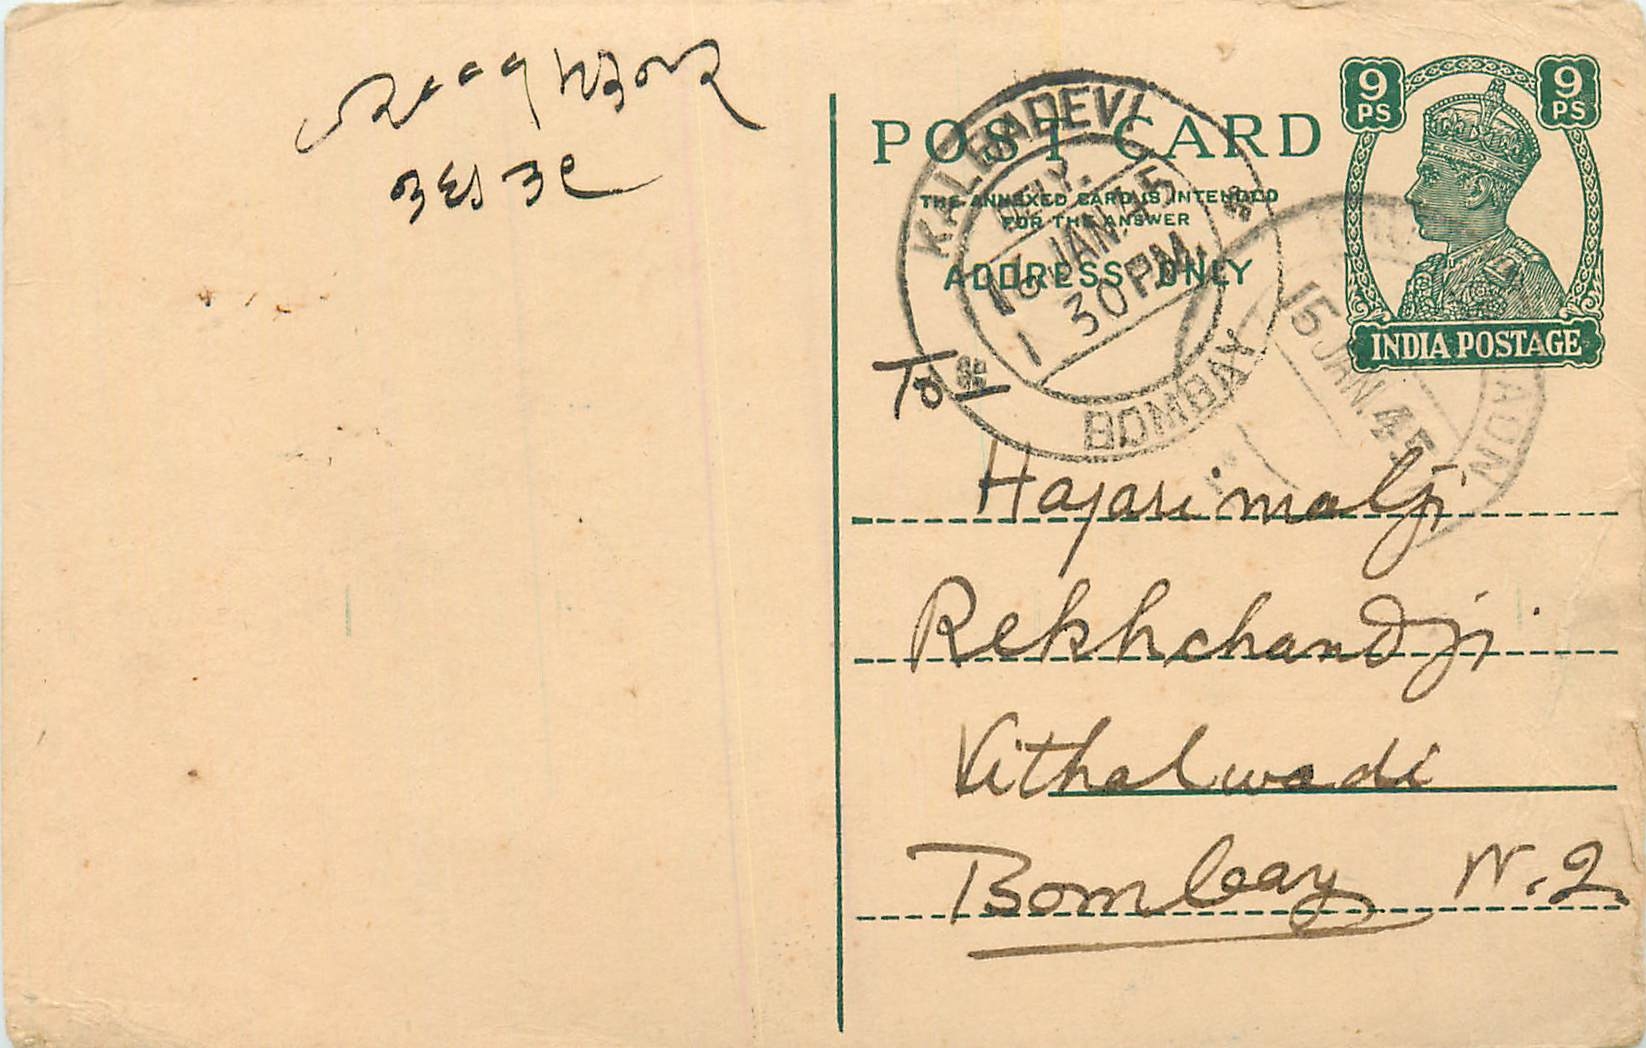 9 PS
9 PS
POST CARD
THE ANNEXED CARD IS INTENDED
FOR THE ANSWER
ADDRESS ONLY
INDIA POSTAGE
KALBADEVI
DELY.
16 JAN. 45
1 30 PM.
BOMBAY
15 JAN. 45
To
Hajarimalji
Rekhchandji
Vithalwadi
Bombay N. 2.